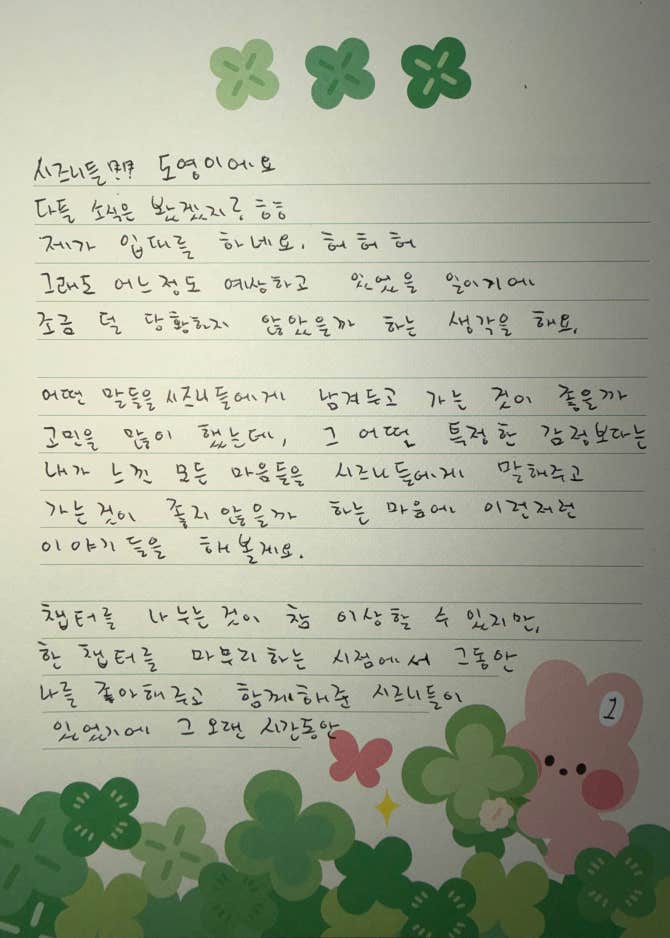 시즈니들!!! 도영이에요
다들 소식은 봤겠지? 흠흠
제가 입대를 하네요. 허 허 허
그래도 어느정도 예상하고 있었을 일이기에
조금 덜 당황하지 않았을까 하는 생각을 해요.
어떤 말들을 시즈니들에게 남겨두고 가는 것이 좋을까
고민을 많이 했는데, 그 어떤 특정한 감정보다는
내가 느낀 모든 마음들을 시즈니들에게 말해주고
가는것이 좋지 않을까 하는 마음에 이런저런
이야기들을 해볼게요.
챕터를 나누는 것이 참 이상할 수 있지만,
한 챕터를 마무리하는 시점에서 그동안
나를 좋아해주고 함께해준 시즈니들이
있었기에 그 오랜 시간동안
1